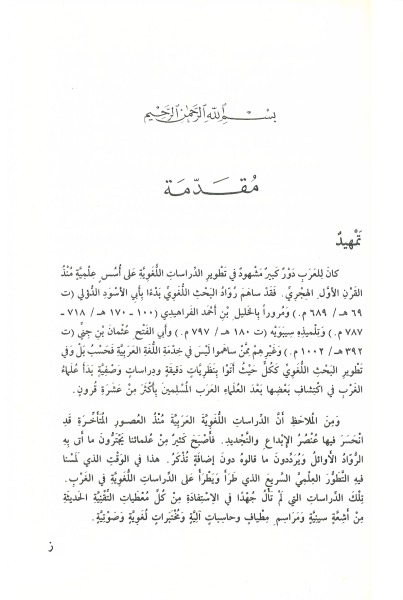 بسم الله الرحمن الرحيم
مُقَدِّمَة
تَمْهِيدٌ
كانَ لِلعَرَبِ دَوْرٌ كَبِيرٌ مَشْهُودٌ في تَطْوِيرِ الدِّراساتِ اللُّغَوِيَّةِ عَلى أُسُسٍ عِلْمِيَّةٍ مُنْذُ
القَرْنِ الأوَّلِ الهِجْرِيِّ. فَقَدْ ساهَمَ رُوّادُ البَحْثِ اللُّغَوِيِّ بَدْءًا بِأبي الأسْوَدِ الدُّؤَلي (ت
٦٩ هـ / ٦٨٩ م.) وَمُرُوراً بِالخَلِيلِ بْنِ أحْمَد الفراهِيدي (١٠٠ - ١٧٠ هـ / ٧١٨ -
٧٨٧ م.) وَبِتِلْمِيذِهِ سِيبَوَيْه (ت ١٨٠ هـ / ٧٩٧ م.) وأبي الفَتْحِ عُثْمان بْنِ جِنِّي (ت
٣٩٢هـ / ١٠٠٢ م.) وَغَيْرِهِمْ مِمَّنْ ساهَموا لَيْسَ في خِدْمَةِ اللُّغَةِ العَرَبِيَّةِ فَحَسْبُ بَلْ وَفي
تَطْوِيرِ البَحْثِ اللُّغَوِيِّ كَكُلٍّ حَيْثُ أتَوْا بِنَظَرِيّاتٍ دَقيقَةٍ ودِراساتٍ وَصْفِيَّةٍ بَدَأ عُلَماءُ
الغَرْبِ في اكْتِشافِ بَعْضِها بَعْدَ العُلَماءِ العَرَبِ المُسْلِمينَ بِأكْثَرَ مِنْ عَشَرَةِ قُرونٍ.
وَمِنَ المُلاحَظِ أنَّ الدِّراساتِ اللُّغَوِيَّةَ العَرَبِيَّةَ مُنْذُ العُصورِ المُتَأخِّرَةِ قَدِ
انْحَسَرَ فيها عُنْصُرُ الإبْداعِ والتَّجْديدِ. فَأصْبَحَ كَثيرٌ مِنْ عُلَمائِنا يَجْتَرُّونَ ما أتى بِهِ
الرُّوّادُ الأوائِلُ وَيُرَدِّدُونَ ما قالوهُ دونَ إضافَةٍ تُذْكَرُ. هذا في الوَقْتِ الذي لَمَسْنا
فيهِ التَّطَوُّرَ العِلْمِيَّ السَّريعَ الذي طَرَأ وَيَطْرَأُ عَلى الدِّراساتِ اللُّغَوِيَّةِ في الغَرْبِ.
تِلْكَ الدِّراساتُ التي لَمْ تَألُ جُهْدًا في الاسْتِفادَةِ مِنْ كُلِّ مُعْطَياتِ التِّقْنِيَّةِ الحَديثَةِ
مِنْ أشِعَّةٍ سينِيَّةٍ وَمَراسِمِ مِطْيافٍ وحاسِباتٍ آلِيَّةٍ وَمُخْتَبَراتٍ لُغَوِيَّةٍ وَصَوْتِيَّةٍ.
ز